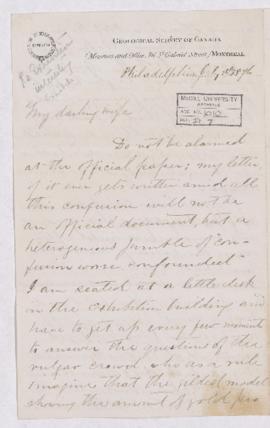 GEOLOGICAL SURVEY OF CANADA
Museum and Office, 76 St Gabriel Street, MONTREAL
Philadelphia
McGILL UNIVERSITY
ARCHIVES
ACC. NO.
REF.
My darling wife,
Do not be alarmed
at the official paper; my letter,
if it ever gets written amid all
this confusion will not be
an official document, but a
heterogenous jumble of "con-
fusion worse confounded"
I am seated at a little desk
in the exhibition building and
have to get up every few moments
to answer the questions of the
vulgar crowd, who as a rule
imagine that the gilded model
showing the amount of gold pro